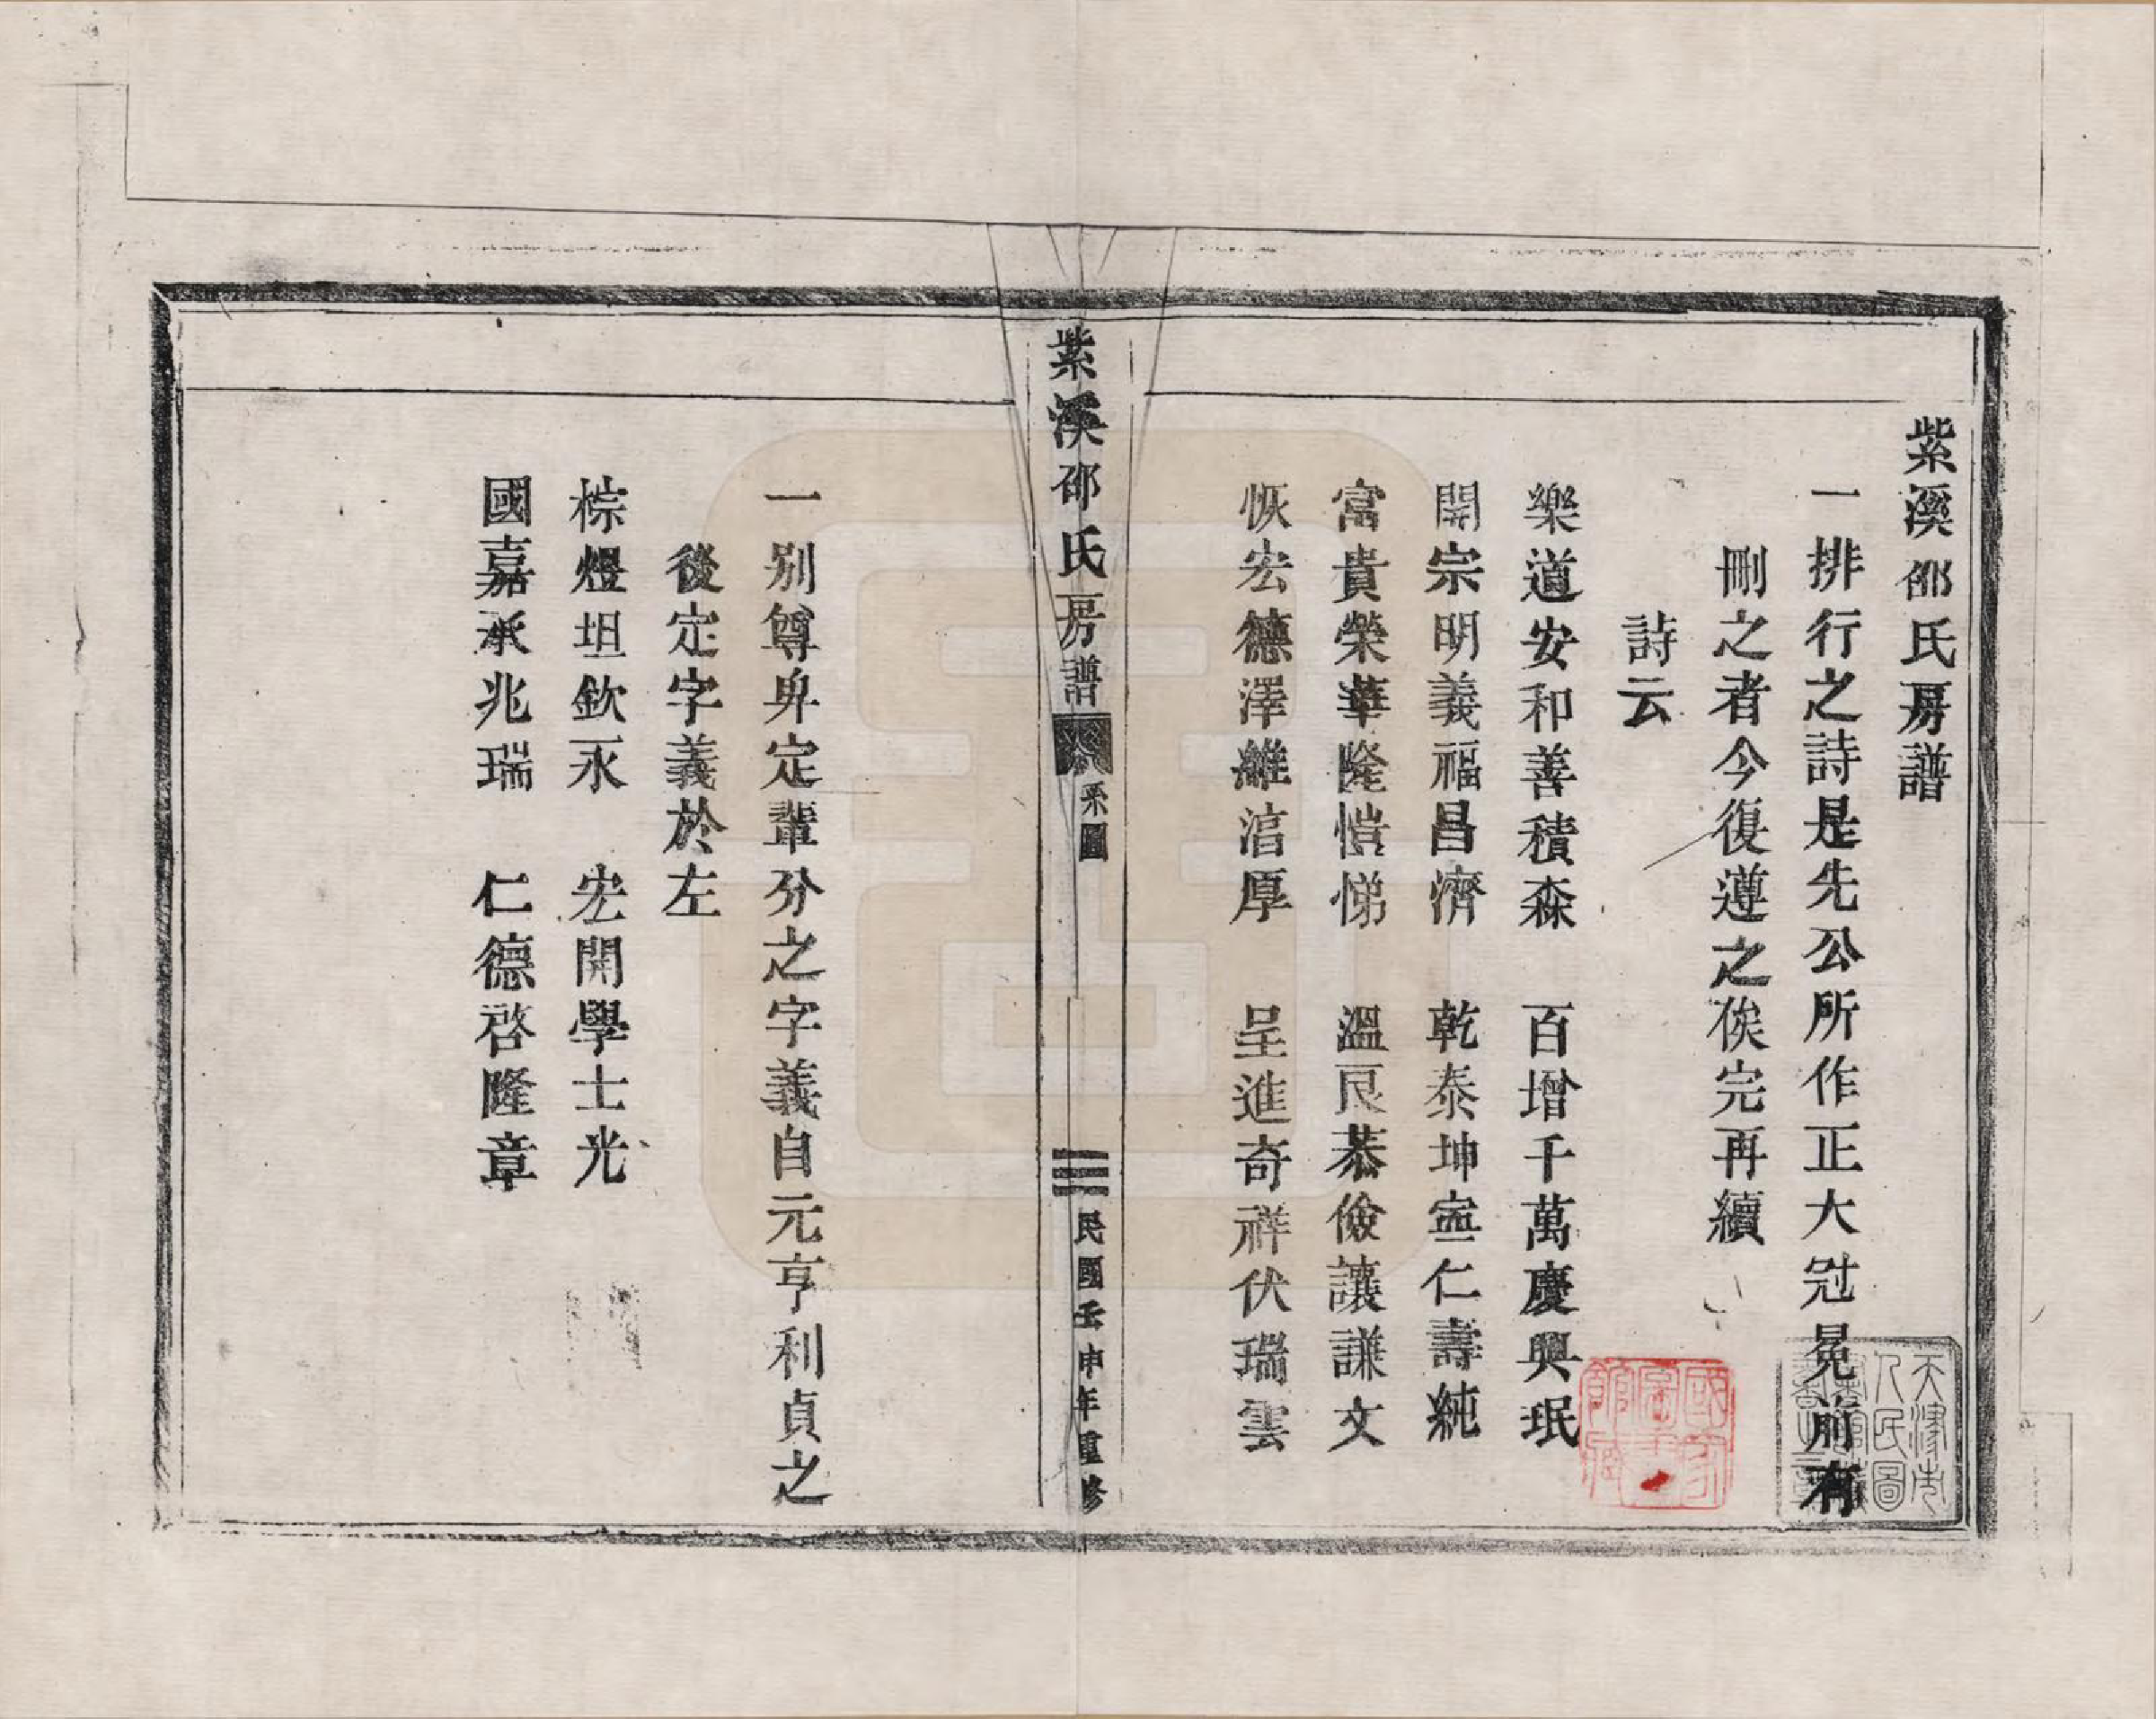 紫溪邵氏房譜
一排行之詩是先公所作正大冠冕前有
刪之者今復遵之俟完再續
詩云
樂道安和善積森　百增千萬慶興珉
開宗明義福昌濟　乾泰坤寍仁壽純
富貴榮華隆愷悌　溫良恭儉讓謙文
恢宏德澤維湻厚　呈進奇祥伏瑞雲
紫溪邵氏房譜　系圖　三　民國壬申年重修
一別尊卑定輩分之字義自元亨利貞之
後定字義於左
棕煜坦欽永　宏開學士光
國嘉承兆瑞　仁德啓隆章
天津市人民圖書館藏書之章
國家圖書館藏